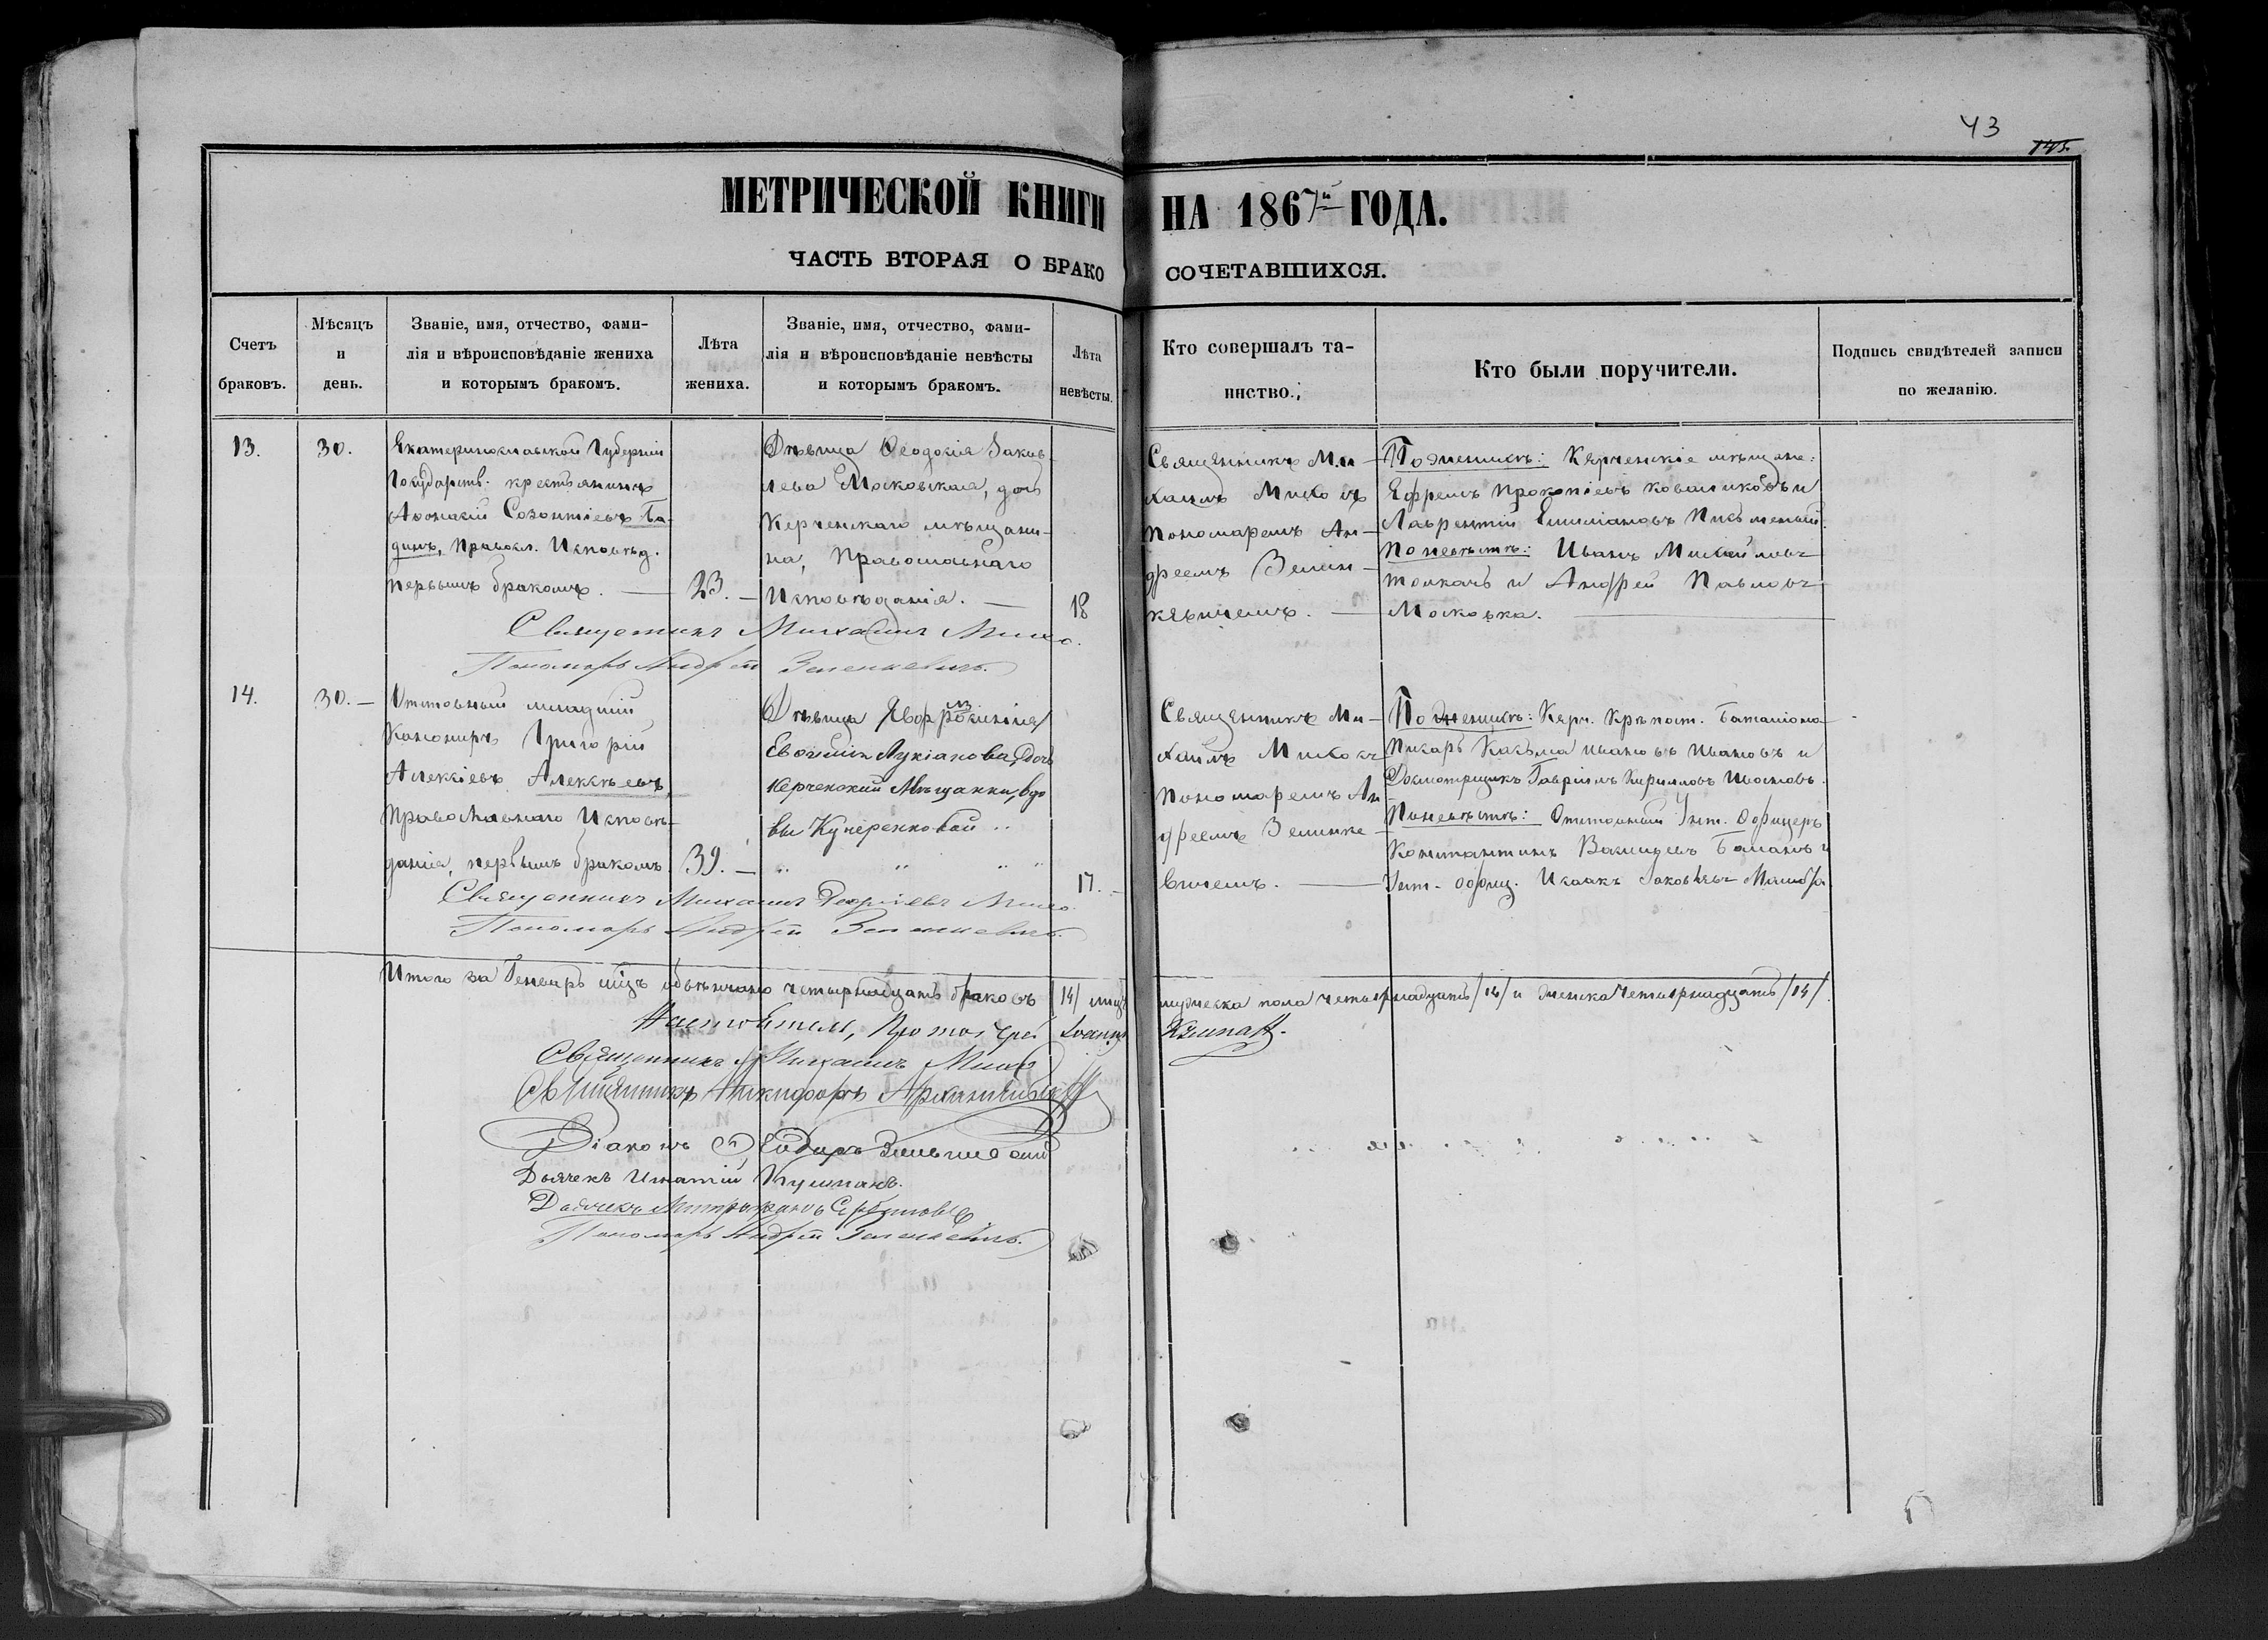 43
145
МЕТРИЧЕСКОЙ КНИГИ НА 1867й ГОДА.
ЧАСТЬ ВТОРАЯ О БРАКО СОЧЕТАВШИХСЯ.
Счетъ браковъ.
Мѣсяцъ и день.
Званіе, имя, отчество, фами-
лія и вѣроисповѣданіе жениха
и которымъ бракомъ.
Лѣта жениха.
Званіе, имя, отчество, фами-
лія и вѣроисповѣданіе невѣсты
и которымъ бракомъ.
Лѣта невѣсты.
Кто совершалъ та-
инство.
Кто были поручители.
Подпись свидѣтелей записи
по желанію.
13.
30.
Екатеринославской Губерніи
Государств. крестьянинъ
Созонтіевъ Ба-
динъ, Правосл. Исповѣд.
первымъ бракомъ.
23.
Дѣвица Ѳеодосія Яковл
лева Московская, дочь
Керченскаго мѣщани-
на, Православнаго
Исповѣданія.
18
Священникъ Ми-
хаилъ Михо съ
Пономаремъ Ан-
дреемъ Зелин-
кевичемъ.
По женихѣ: Керченскіе мѣщане:
Ефремъ Прокопіевъ Ковшиковъ и
Лаврентій Емиліановъ Письменый.
По невѣстѣ: Иванъ Михайловъ
Толкачь и Андрей Павловъ
Московка.
Священникъ Михаилъ Михо.
Пономарь Андрей Зеленкевичъ.
14.
30.
Отставный младшій
Канониръ Григорій
Алексіевъ Алексѣевъ,
Православнаго Исповѣ-
данія, первымъ бракомъ
39.
Дѣвица
Евфимія Лукіанова, дочь
Керченской Мѣщанки, вдо
вы Кучеренковой
17.
Священникъ Ми-
хаилъ Михо съ
Пономаремъ Ан
дреемъ Зелинке-
вичемъ.
По женихѣ: Керч. Крѣпост. Баталіона
Писарь Козьма Ивановъ Ивановъ и
Досмотрщикъ Гавріилъ Кирилловъ
По невѣстѣ: Отставный Унт. Офицеръ
Константинъ Васильевъ Баланъ и
Унт. офиц. Исаакъ Яковлевъ
Священникъ Михаилъ Георгіевъ Михо
Пономарь Андрей Зеленкевичъ.
Итого за Генварь мѣц. обвѣнчано четырнадцать браковъ /14/ лицъ мужеска пола четырнадцать /14/ и женска четырнадцать /14/.
Настоятель, Протоіерей Іоаннъ Кумпанъ.
Священникъ Михаилъ Михо
Священникъ Никифоръ
Діаконъ
Дьячекъ Игнатій Кумпанъ.
Дьячекъ Митрофанъ
Пономарь Андрей Зеленкевичъ.